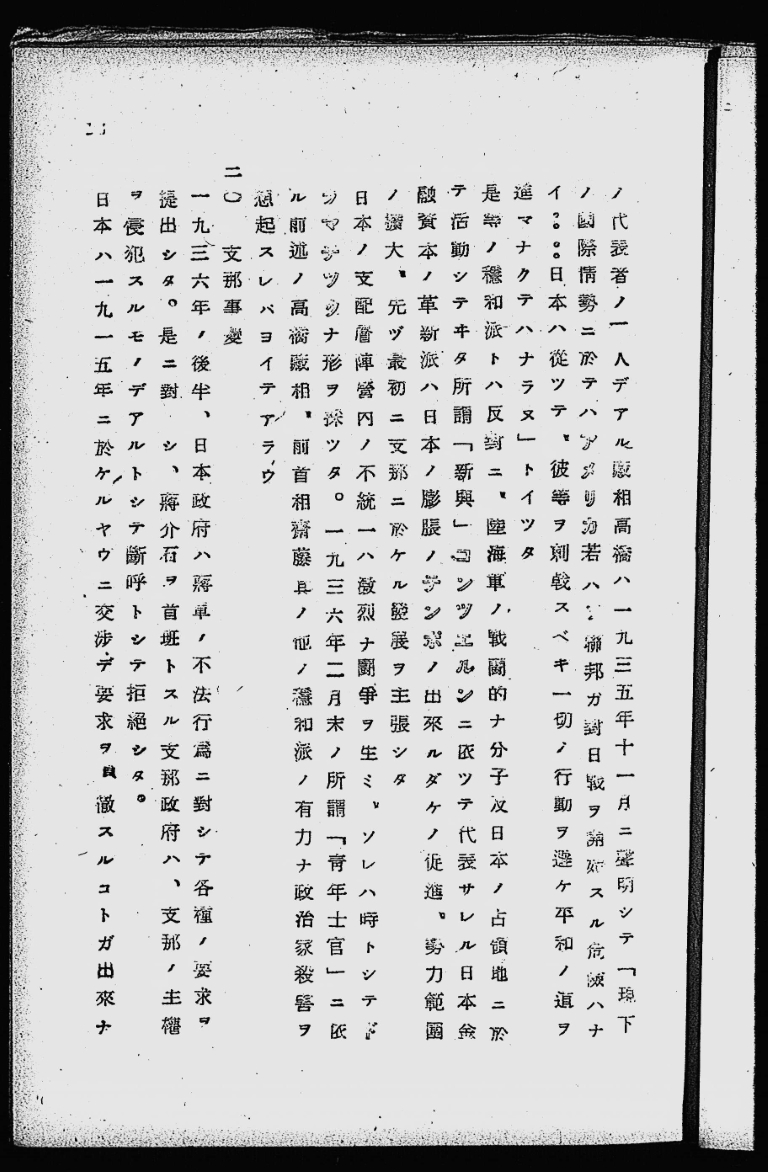 ノ代表者ノ一人デアル蔵相高橋ハ一九三五年十一月ニ聲明シテ「現下
ノ國際情勢ニ於テハアメリカ若ハソ聯邦ガ對日戰ヲ スル危險ハナ
イ。。。。日本ハ從ツテ、彼等ヲ刺戟スベキ一切ノ行動ヲ避ケ平和ノ道ヲ
進マナクテハナラヌ」トイツタ
是等ノ穩和派トハ反對ニ、陸海軍ノ戰鬪的ナ分子及日本ノ占領地ニ於
テ活動シテヰタ所謂「新興」コンツエルンニ依ツテ代表サレル日本金
融資本ノ革新派ハ日本ノ膨脹ノテンポノ出來ルダケノ促進。勢力範圍
ノ擴大、先ヅ最初ニ支那ニ於ケル發展ヲ主張シタ
日本ノ支配層陣營内ノ不統一ハ激烈ナ鬪爭ヲ生ミ、ソレハ時トシテド
ラマチツクナ形ヲ採ツタ。一九三六年二月末ノ所謂「青年士官」ニ依
ル前述ノ高橋蔵相、前首相齋藤其ノ他ノ穩和派ノ有力ナ政治家殺害ヲ
想起スレバヨイデアラウ
二〇 支那事變
一九三六年ノ後半、日本政府ハ蔣 ノ不法行爲ニ對シテ各種ノ要求ヲ
提出シタ。是ニ對シ、蔣介石ヲ首班トスル支那政府ハ、支那ノ主權
ヲ侵犯スルモノデアルトシテ斷呼トシテ拒絶シタ。
日本ハ一九一五年ニ於ケルヤウニ交渉デ要求ヲ貫徹スルコトガ出來ナ